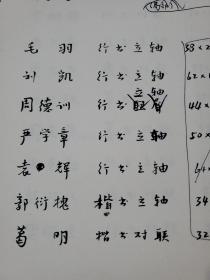 毛羽 行书立轴 33×2
刘凯 行书立轴 62×1
立轴
周德训 行书 44×
严学章 行书立轴 50×
袁辉 行书立轴 64
郭衍槐 楷书立轴 34
葛明 楷书对联 32